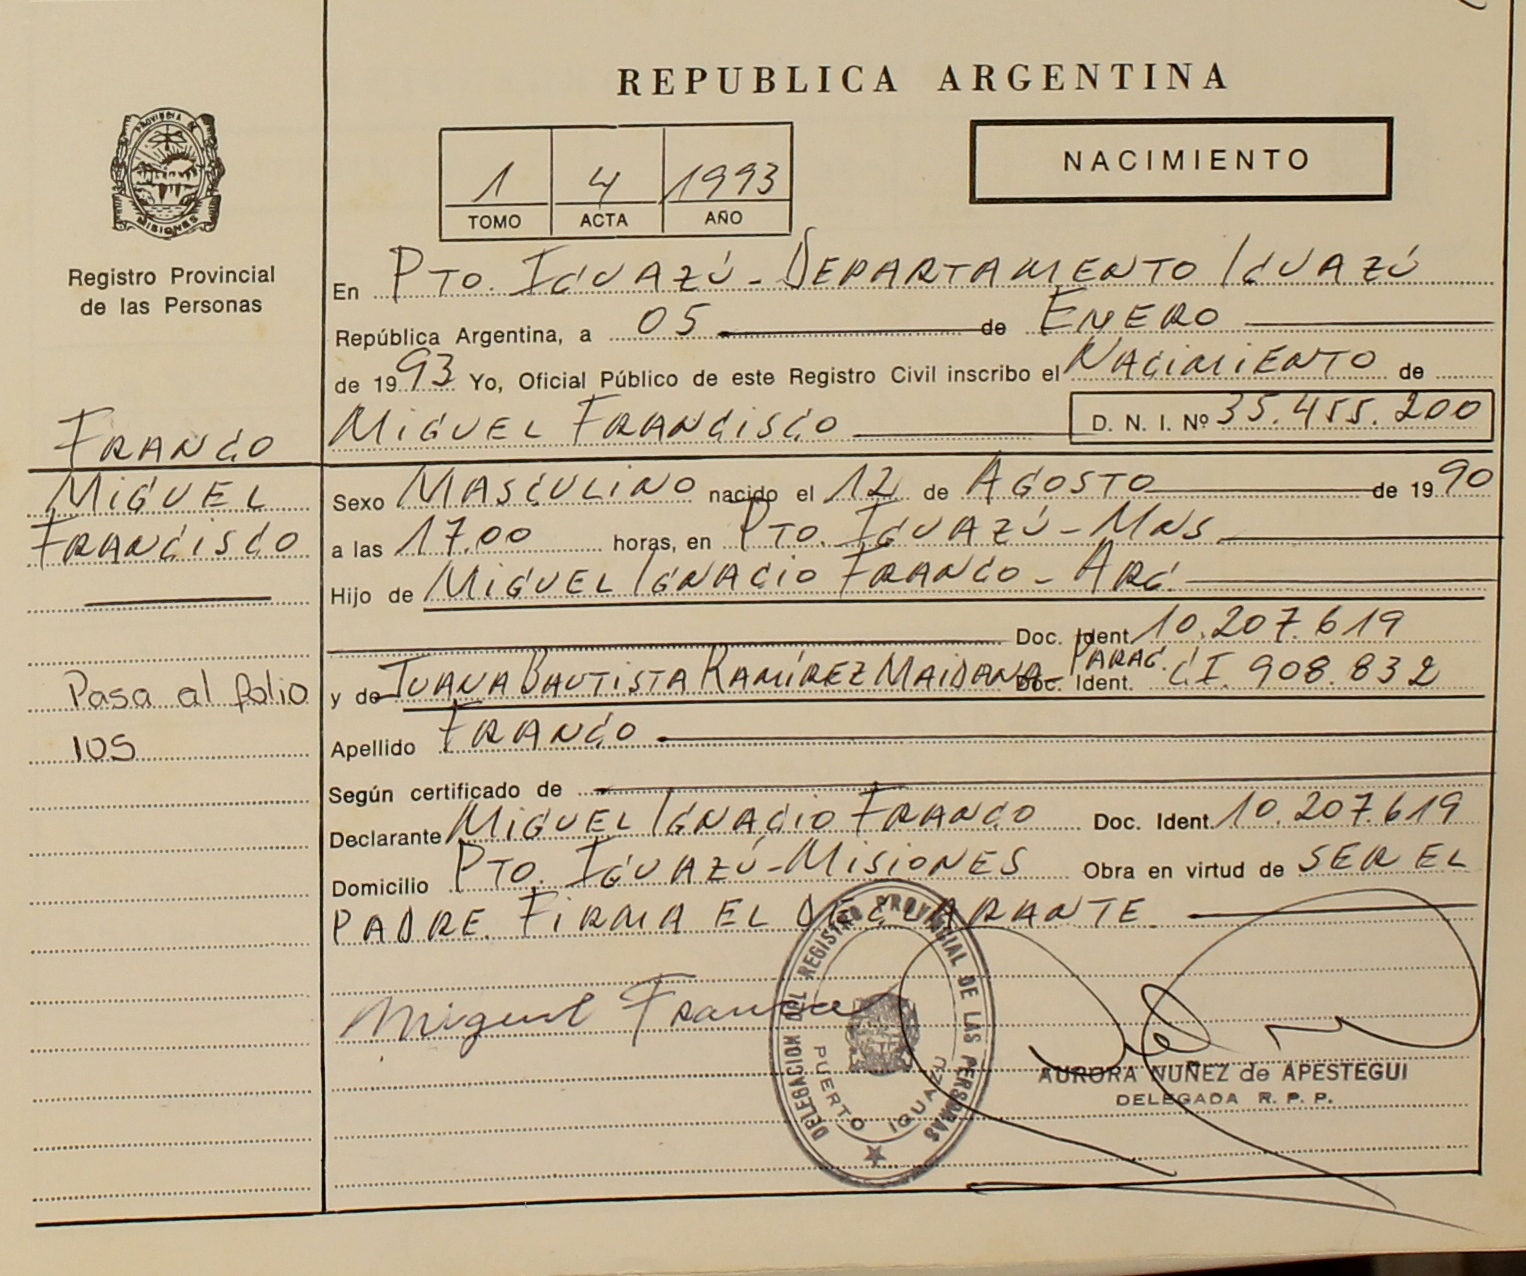 REPUBLICA ARGENTINA
PROVINCIA DE MISIONES
Registro Provincial
de las Personas
1 4 1993
TOMO ACTA AÑO
NACIMIENTO
En PTO. IGUAZÚ - DEPARTAMENTO IGUAZÚ
República Argentina, a 05 de ENERO
de 1993 Yo, Oficial Público de este Registro Civil inscribo el NACIMIENTO de
MIGUEL FRANCISCO D. N. I. Nº 35.455.200
FRANCO
MIGUEL
FRANCISCO
Pasa al folio
105
Sexo MASCULINO nacido el 12 de AGOSTO de 1990
a las 17.00 horas, en PTO. IGUAZÚ - MNS
Hijo de MIGUEL IGNACIO FRANCO - ARG.
Doc. Ident. 10.207.619
y de JUANA BAUTISTA RAMÍREZ MAIDANA - PARAG. Doc. Ident. C.I. 908.832
Apellido FRANCO
Según certificado de
Declarante MIGUEL IGNACIO FRANCO Doc. Ident. 10.207.619
Domicilio PTO. IGUAZÚ - MISIONES Obra en virtud de SER EL
PADRE. FIRMA EL DECLARANTE
Miguel Franco
DELEGACION DEL REGISTRO PROVINCIAL DE LAS PERSONAS
PUERTO IGUAZU
AURORA NUÑEZ de APESTEGUI
DELEGADA R. P. P.